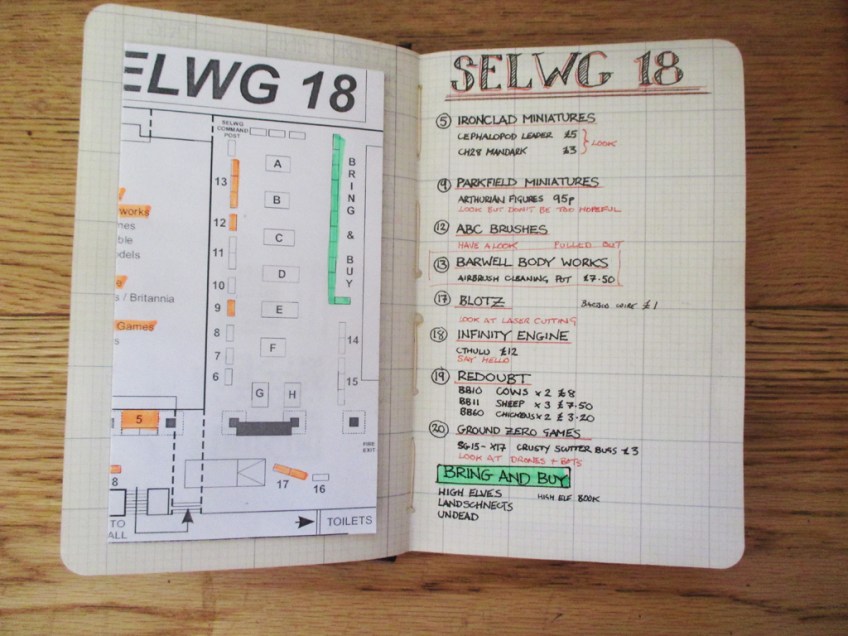 ELWG 18
SELWG
COMMAND
POST
A
B
C
D
E
F
G
H
BRING & BUY
13
12
11
10
9
8
7
6
14
15
works
nes
ble
odels
s / Britannia
Games
s
5
FIRE
EXIT
8
17
16
TO
ALL
TOILETS
SELWG 18
5 IRONCLAD MINIATURES
CEPHALOPOD LEADER £5
CH28 MANDARK £3
LOOK
9 PARKFIELD MINIATURES
ARTHURIAN FIGURES 95p
LOOK BUT DON'T BE TOO HOPEFUL
12 ABC BRUSHES
HAVE A LOOK PULLED OUT
13 BARWELL BODY WORKS
AIRBRUSH CLEANING POT £7.50
17 BLOTZ
WIRE £1
LOOK AT LASER CUTTING
18 INFINITY ENGINE
CTHULU £12
SAY HELLO
19 REDOUBT
BB10 COWS x 2 £8
BB11 SHEEP x 3 £7.50
BB60 CHICKENS x 2 £3.20
20 GROUND ZERO GAMES
SG15-X17 CRUSTY SCUTTER BUGS £3
LOOK AT DRONES + BOTS
BRING AND BUY
HIGH ELVES HIGH ELF BOOK
LANDSCHNECTS
UNDEAD